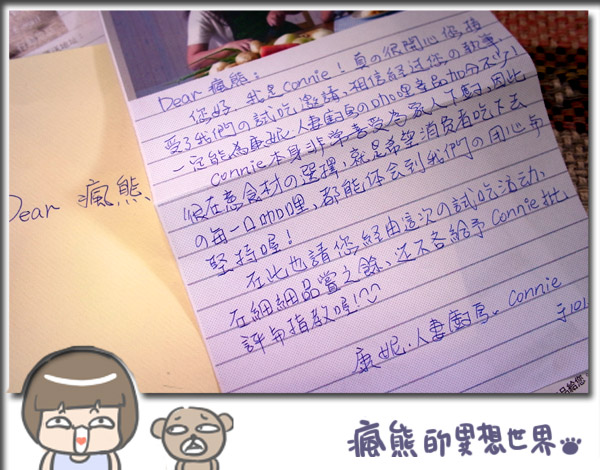 Dear 瘋熊：
你好 我是Connie！真の很開心你接
受了我們の試吃邀請，相信經過您の執筆，
一定能為康妮人妻廚房の咖哩產品加分不少！
Connie本身非常喜愛為家人下廚，因此
很在意食材の選擇，就是希望消費者吃下去
の每一口咖哩，都能体會到我們の用心与
堅持喔！
在此也請您經由這次の試吃活动，
在細細品嘗之餘，还不吝給予Connie批
評与指教喔！^^
康妮.人妻廚房。Connie
于101
Dear 瘋熊
品給您
瘋熊的異想世界